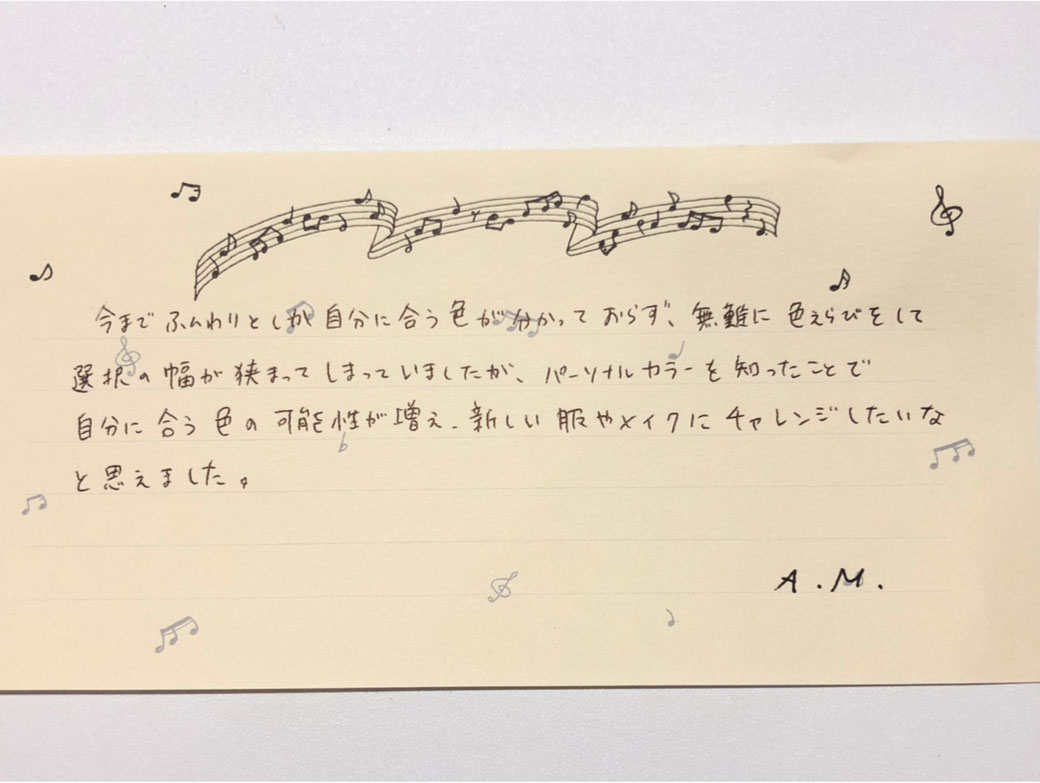 今までふんわりとしか自分に合う色が分かっておらず、無難に色えらびをして
選択の幅が狭まってしまっていましたが、パーソナルカラーを知ったことで
自分に合う色の可能性が増え、新しい服やメイクにチャレンジしたいな
と思えました。
A.M.